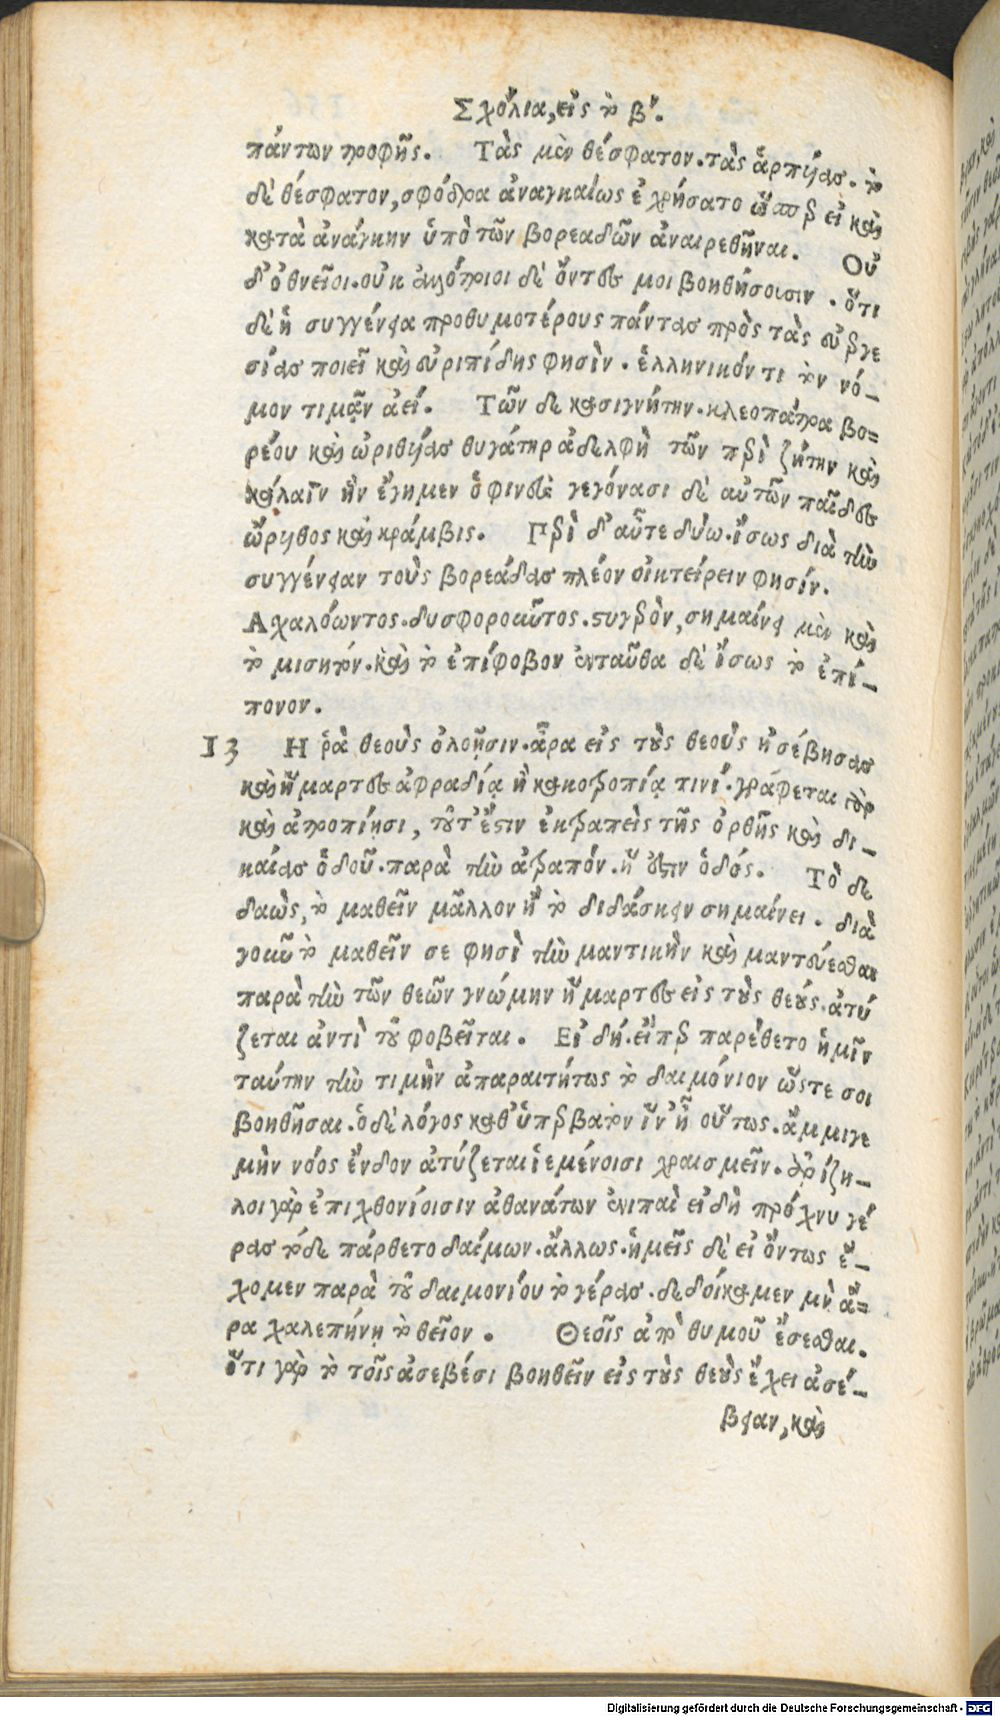 Σχόλια, εἰς τὸ β'.
πάντων τροφῆς. Τὰς μὲν θέσφατον. τὰς ἁρπύας. τὸ
δὲ θέσφατον, σφόδρα ἀναγκαίως ἐχρήσατο ὥσπερ εἰ καὶ
κατὰ ἀνάγκην ὑπὸ τῶν βορεαδῶν ἀναιρεθῆναι. Οὐ
δ' ὀθνεῖοι. οὐκ ἀλλότριοι δὲ ὄντες μοι βοηθήσοισιν. ὅτι
δὲ ἡ συγγένεια προθυμοτέρους πάντας πρὸς τὰς εὐεργε
σίας ποιεῖ καὶ εὐριπίδης φησὶν. ἑλληνικόν τι τὸν νό-
μον τιμᾷν ἀεί. Τῶν δε κασιγνήτην. κλεοπάτρα βο=
ρέου καὶ ὠριθύας θυγάτηρ ἀδελφὴ τῶν περὶ ζήτην καὶ
κάλαϊν ἣν ἔγημεν ὁ φινεὺς γεγόνασι δὲ αὐτῶν παῖδες
ὤρυθος καὶ κράμβις. Περὶ δ' αὖτε δύω. ἴσως διὰ τὴν
συγγένειαν τοὺς βορεάδας πλέον οἰκτείρειν φησίν.
Ἀχαλόωντος. δυσφοροῦντος. στυγερὸν, σημαίνει μὲν καὶ
τὸ μισητὸν. καὶ τὸ ἐπίφοβον ἐνταῦθα δὲ ἴσως τὸ ἐπί-
πονον.
13 Η ῥὰ θεοὺς ὀλοῇσιν. ἆρα εἰς τοὺς θεοὺς ἠσέβησας
καὶ ἥμαρτες ἀφραδίᾳ ἢ κακοτροπίᾳ τινί. γράφεται γὰρ
καὶ ἀτροπίησι, τοῦτ' ἔστιν ἐκτραπεὶς τῆς ὀρθῆς καὶ δι-
καίας ὁδοῦ. παρὰ τὴν ἀτραπόν. ἥ ἐστιν ὁδός. Τὸ δε
δαὼς, τὸ μαθεῖν μᾶλλον ἢ τὸ διδάσκειν σημαίνει. διὰ
γοῦν τὸ μαθεῖν σε φησὶ τὴν μαντικὴν καὶ μαντεύεσθαι
παρὰ τὴν τῶν θεῶν γνώμην ἥμαρτες εἰς τοὺς θεούς. ἀτύ
ζεται ἀντὶ τοῦ φοβεῖται. Εἰ δή. εἴπερ παρέθετο ἡμῖν
ταύτην τὴν τιμὴν ἀπαραιτήτως τὸ δαιμόνιον ὥστε σοι
βοηθῆσαι. ὁ δὲ λόγος καθ' ὑπερβατὸν ἵν' ᾖ οὕτως. ἄμμιγε
μὴν νόος ἔνδον ἀτύζεται ἱεμένοισι χραισμεῖν. ἀρίζη-
λοι γὰρ ἐπιχθονίοισιν ἀθανάτων ἐνιπαὶ εἰ δὴ πρόχνυ γέ
ρας τόδε πάρθετο δαίμων. ἄλλως. ἡμεῖς δὲ εἰ ὄντως ἔ-
χομεν παρὰ τοῦ δαιμονίου τὸ γέρας. δεδοίκαμεν μὴ ἄ=
ρα χαλεπήνῃ τὸ θεῖον. Θεοῖς ἀπὸ θυμοῦ ἔσεσθαι.
ὅτι γὰρ τὸ τοῖς ἀσεβέσι βοηθεῖν εἰς τοὺς θεοὺς ἔχει ἀσέ-
βειαν, καὶ
Digitalisierung gefördert durch die Deutsche Forschungsgemeinschaft - DFG